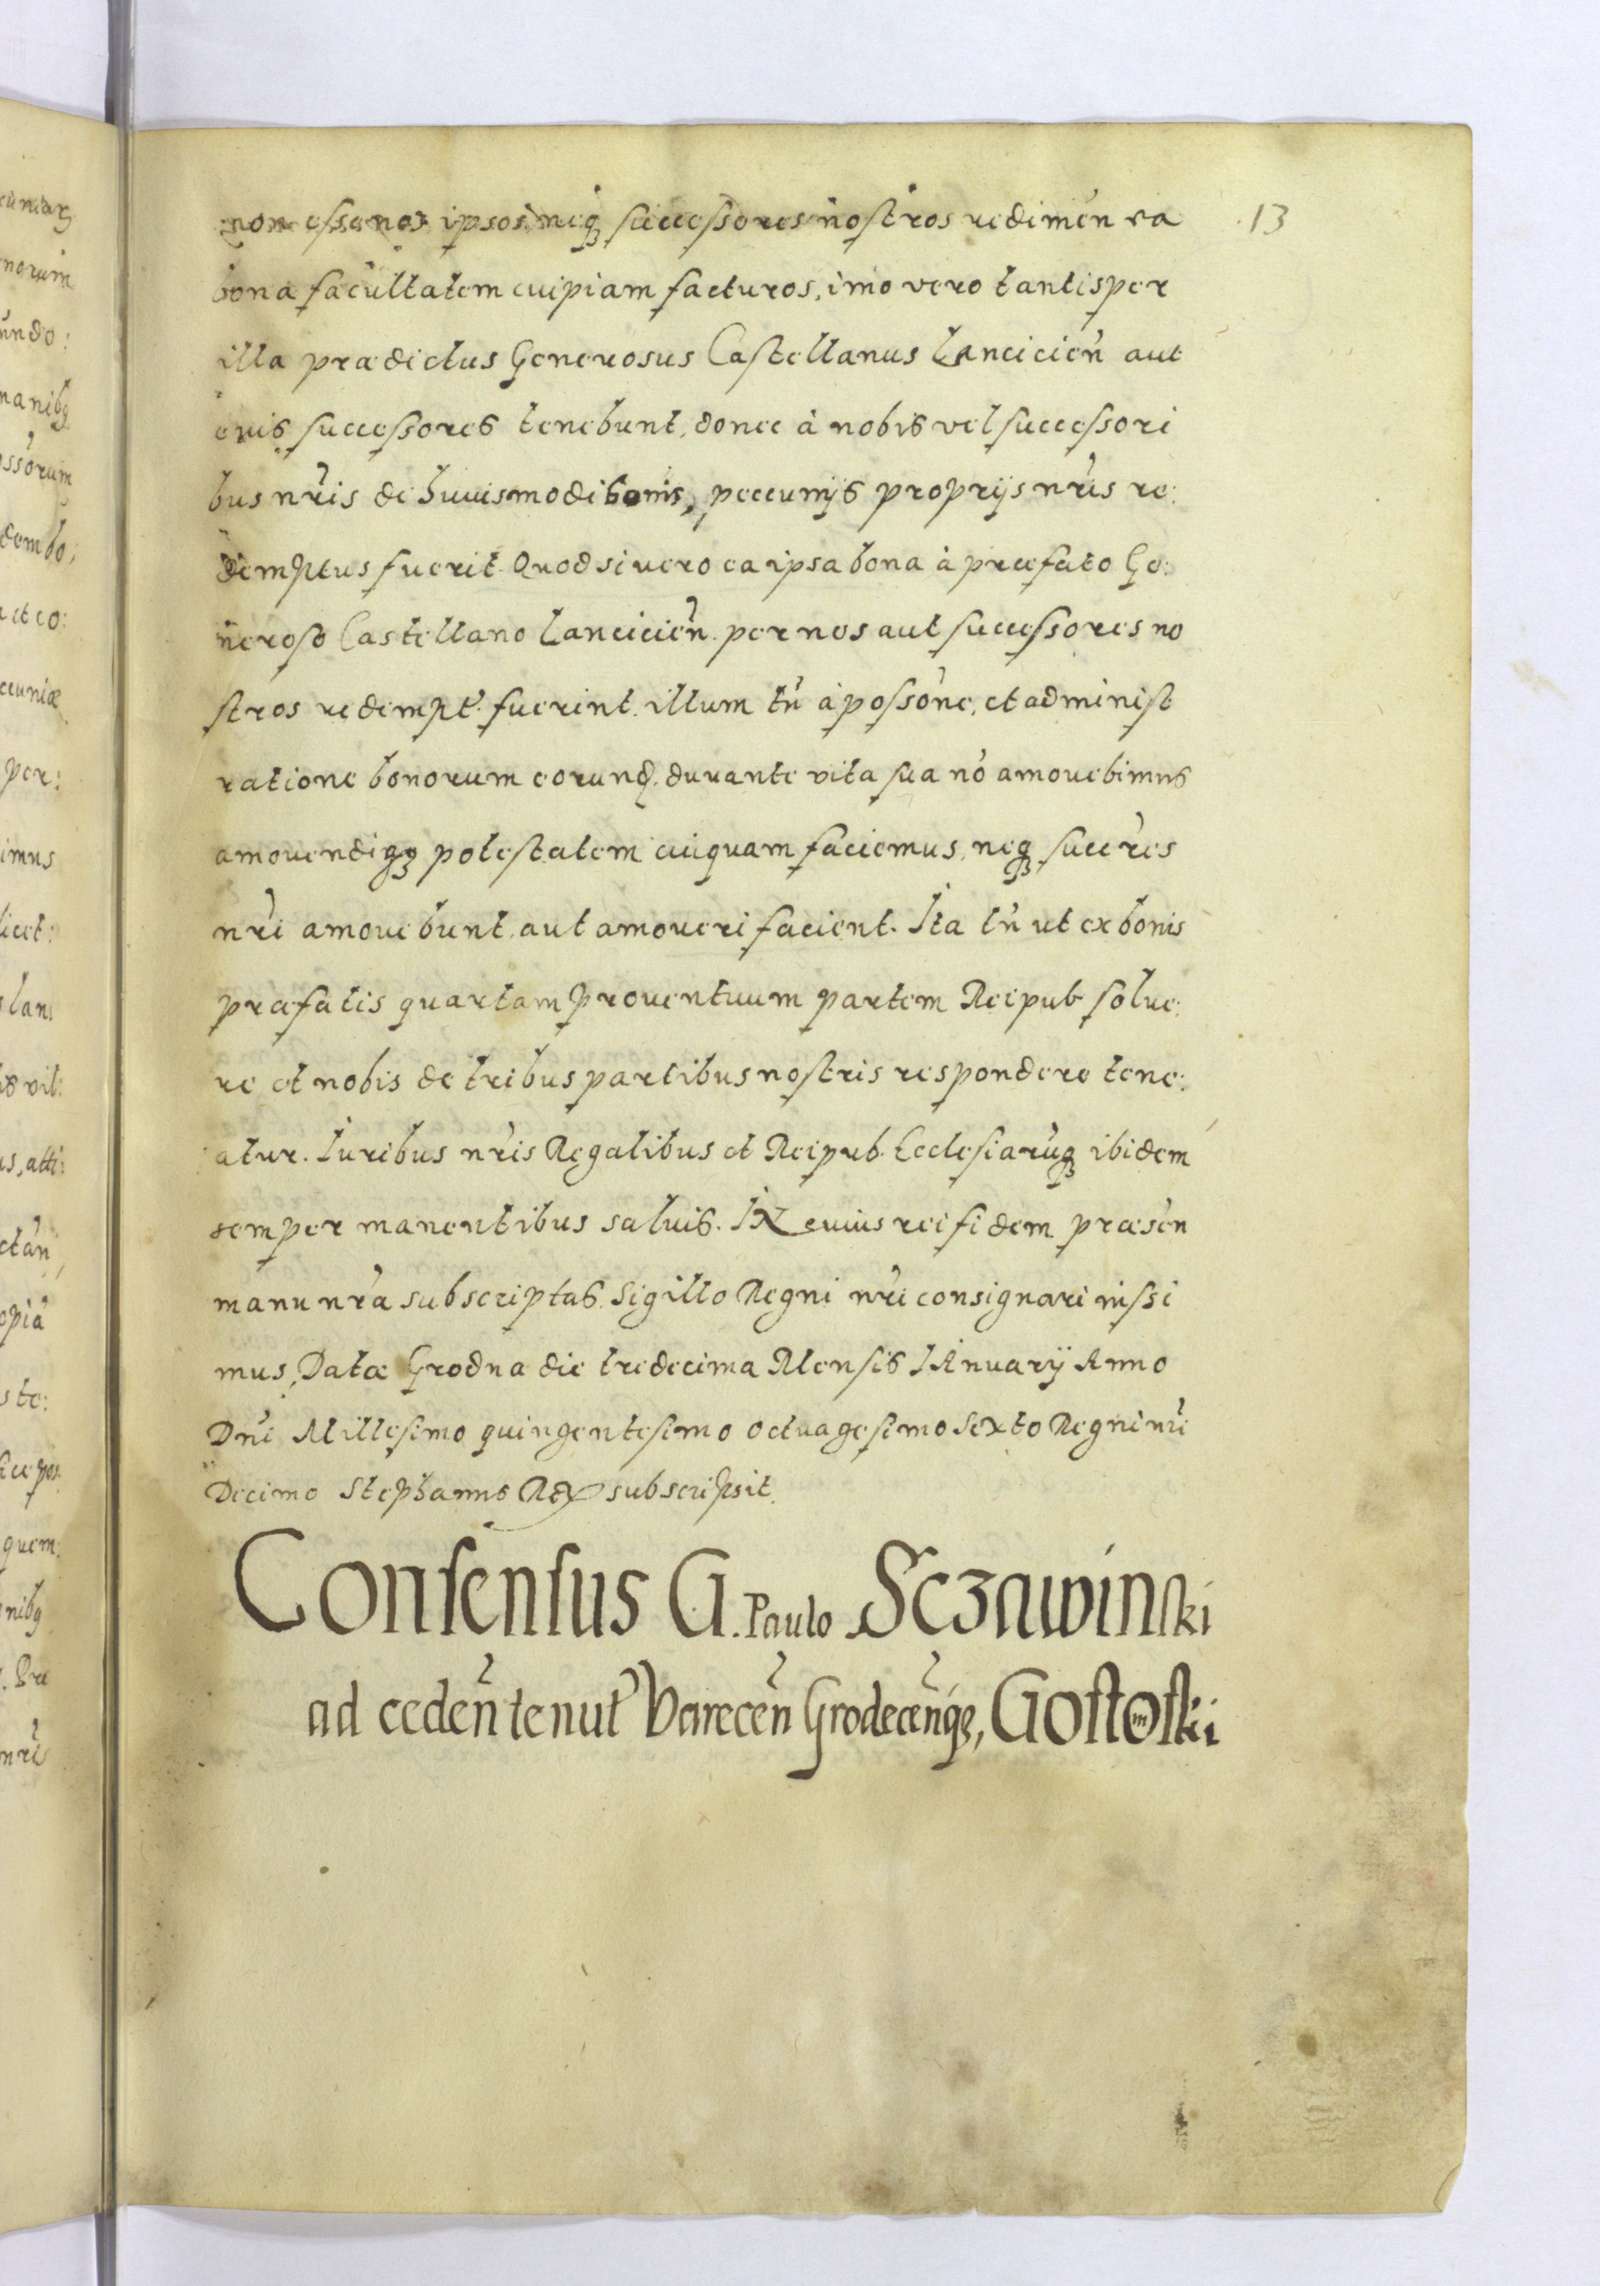 13
non esse nos ipsos, neq; successores nostros redimen̄ ea
bona facultatem cuipiam facturos, imo vero tantisper
illa prædictus Generosus Castellanus Lancicien̄ aut
euis successores tenebunt, donec à nobis vel successori
bus nr̄is de huiusmodi bonis, peccunijs proprijs nr̄is re:
demptus fuerit. Quod si uero ea ipsa bona à præfato Ge:
neroso Castellano Lancicien̄. per nos aut successores no
stros redempt. fuerint. illum tn̄ à possōne, et administ
ratione bonorum eorund. durante vita sua nō amouebimus
amouendiq; potestatem cuiquam faciemus, neq; succr̄es
nr̄i amouebunt, aut amoueri facient. Ita tn̄ ut ex bonis
præfatis quartam prouentuum partem Reipub solue:
re et nobis de tribus partibus nostris respondere tene:
atur. Iuribus nr̄is Regalibus et Reipub. Ecclesiarūq; ibidem
semper manentibus saluis. IN cuius rei fidem præsen̄
manu nr̄a subscriptas. Sigillo Regni nr̄i consignari iussi
mus, Datæ Grodna die tredecima Mensis IAnuarij Anno
Dn̄i Millesimo quingentesimo octuagesimo Sexto Regni nr̄i
Decimo Stephanus Rex subscripsit.
Consensus G. Paulo Sczawinski
ad ceden̄ tenut Varecen̄ Grodecen̄q;, Gostomski